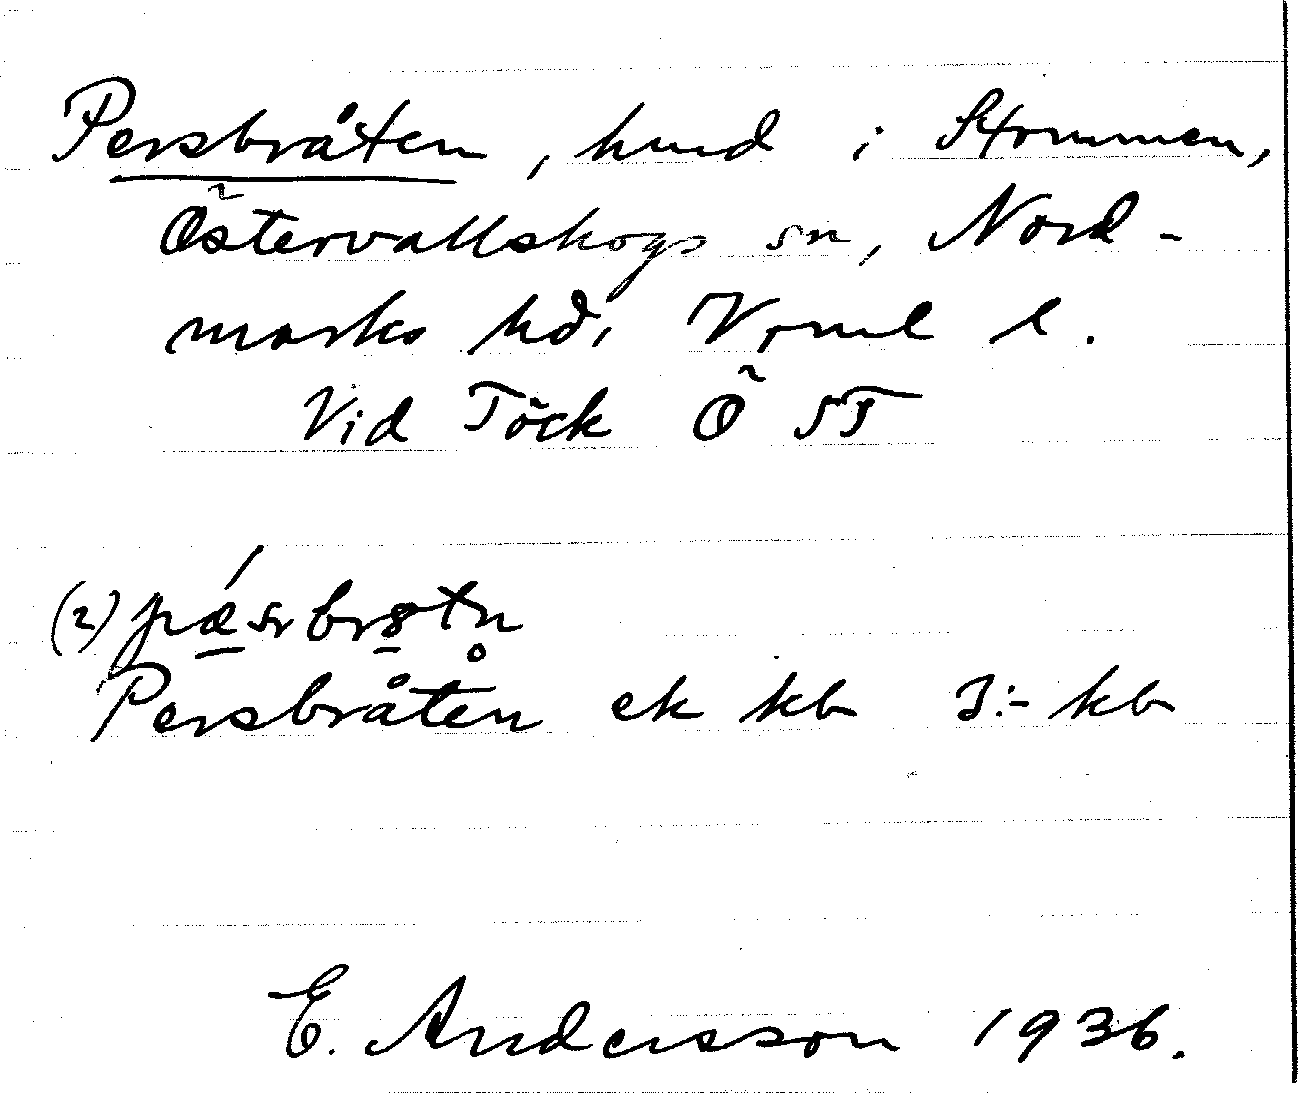 Persbråten, hmd i Strommen,
Östervallskogs sn, Nord-
marks hd, Vrml l.
Vid Töck Ö ST
(2)
Persbråten ek kb 3:- kb
E. Andersson 1936.